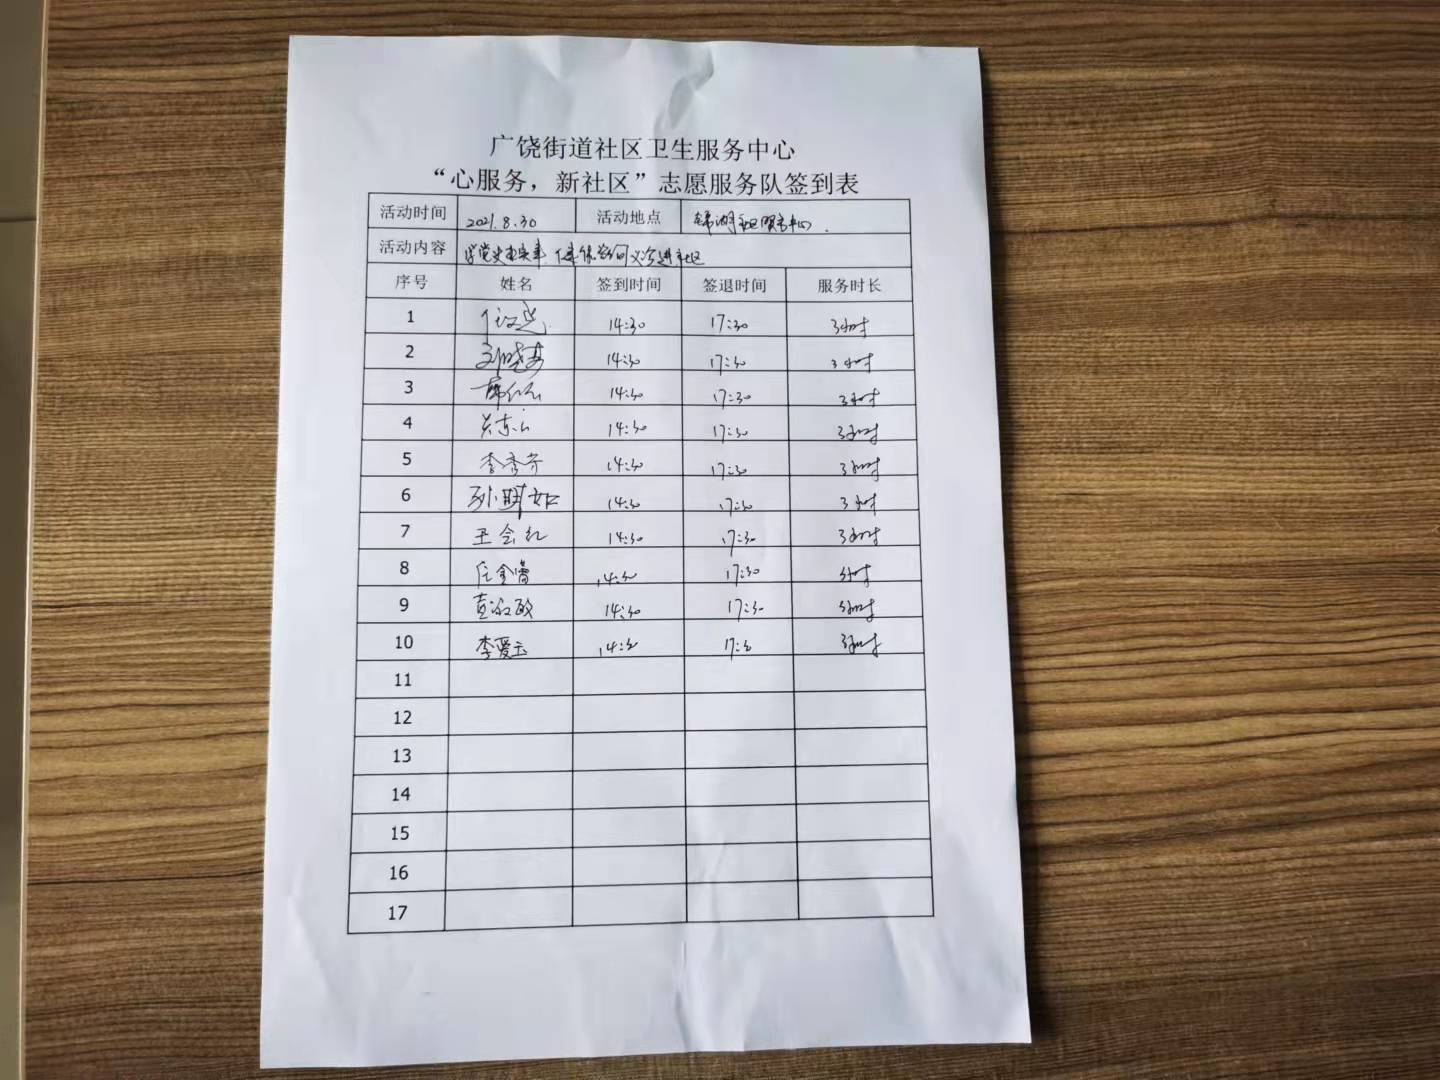 广饶街道社区卫生服务中心
“心服务，新社区”志愿服务队签到表
活动时间 2021.8.30 活动地点 锦湖社区服务中心.
活动内容 学党史办实事 义诊进社区
序号 姓名 签到时间 签退时间 服务时长
1 14:30 17:30 3小时
2 14:30 17:30 3小时
3 14:30 17:30 3小时
4 14:30 17:30 3小时
5 李秀芳 14:30 17:30 3小时
6 孙明女 14:30 17:30 3小时
7 王会红 14:30 17:30 3小时
8 任金凿 14:30 17:30 3小时
9 黄淑敏 14:30 17:30 3小时
10 李爱玉 14:30 17:30 3小时
11
12
13
14
15
16
17